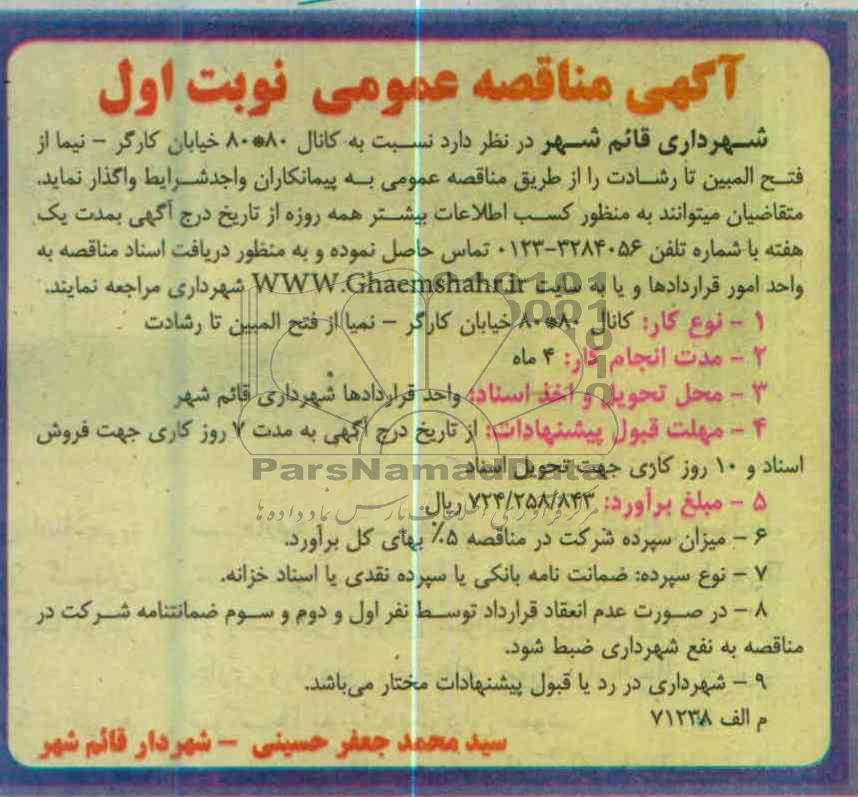 آگهی مناقصه عمومی نوبت اول
شهرداری قائم شهر در نظر دارد نسبت به کانال ۸۰*۸۰ خیابان کارگر – نیما از
فتح المبین تا رشادت را از طریق مناقصه عمومی به پیمانکاران واجدشرایط واگذار نماید.
متقاضیان میتوانند به منظور کسب اطلاعات بیشتر همه روزه از تاریخ درج آگهی بمدت یک
هفته با شماره تلفن ۳۲۸۴۰۵۶-۰۱۲۳ تماس حاصل نموده و به منظور دریافت اسناد مناقصه به
واحد امور قراردادها و یا به سایت WWW.Ghaemshahr.ir شهرداری مراجعه نمایند.
۱ – نوع کار: کانال ۸۰*۸۰ خیابان کارگر – نمیا از فتح المبین تا رشادت
۲ – مدت انجام کار: ۴ ماه
۳ – محل تحویل و اخذ اسناد: واحد قراردادها شهرداری قائم شهر
۴ – مهلت قبول پیشنهادات: از تاریخ درج آگهی به مدت ۷ روز کاری جهت فروش
اسناد و ۱۰ روز کاری جهت تحویل اسناد
ParsNamadData
۵ – مبلغ برآورد: ۷۲۴/۲۵۸/۸۴۳ ریال.
۶ – میزان سپرده شرکت در مناقصه ۵٪ بهای کل برآورد.
۷ – نوع سپرده: ضمانت نامه بانکی یا سپرده نقدی یا اسناد خزانه.
۸ – در صورت عدم انعقاد قرارداد توسط نفر اول و دوم و سوم ضمانتنامه شرکت در
مناقصه به نفع شهرداری ضبط شود.
۹ – شهرداری در رد یا قبول پیشنهادات مختار می‌باشد.
م الف ۷۱۲۳۸
سید محمد جعفر حسینی – شهردار قائم شهر